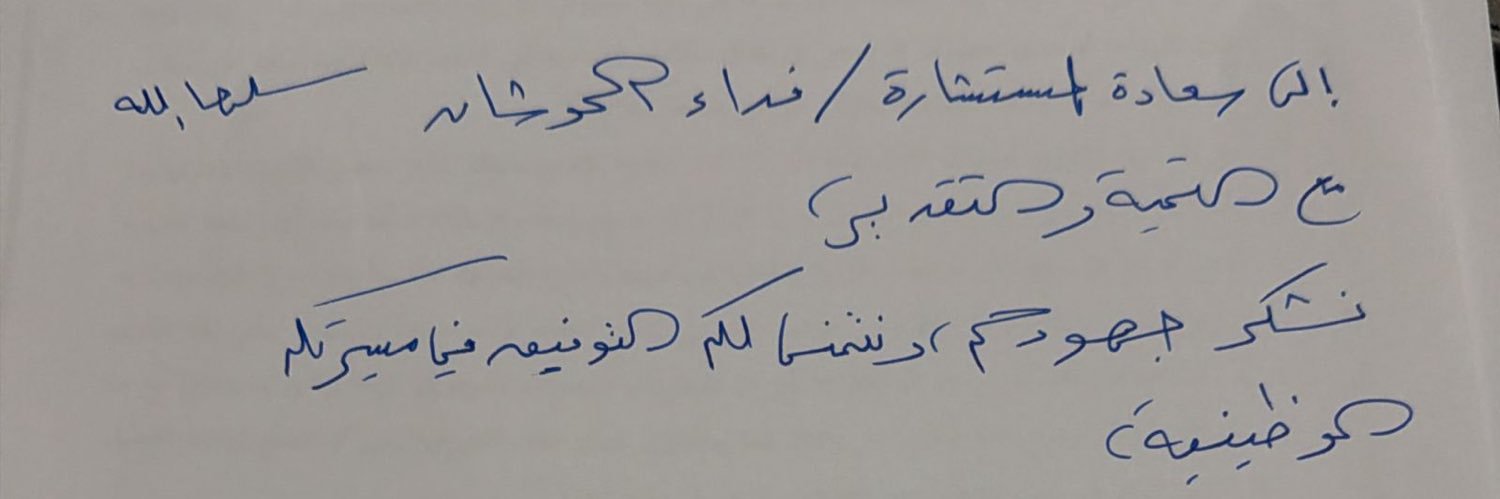 إلى سعادة المستشارة / فداء الحوشان سلمها الله
مع التحية والتقدير،
نشكر جهودكم، ونتمنى لكم التوفيق في مسيرتكم
الوظيفية،